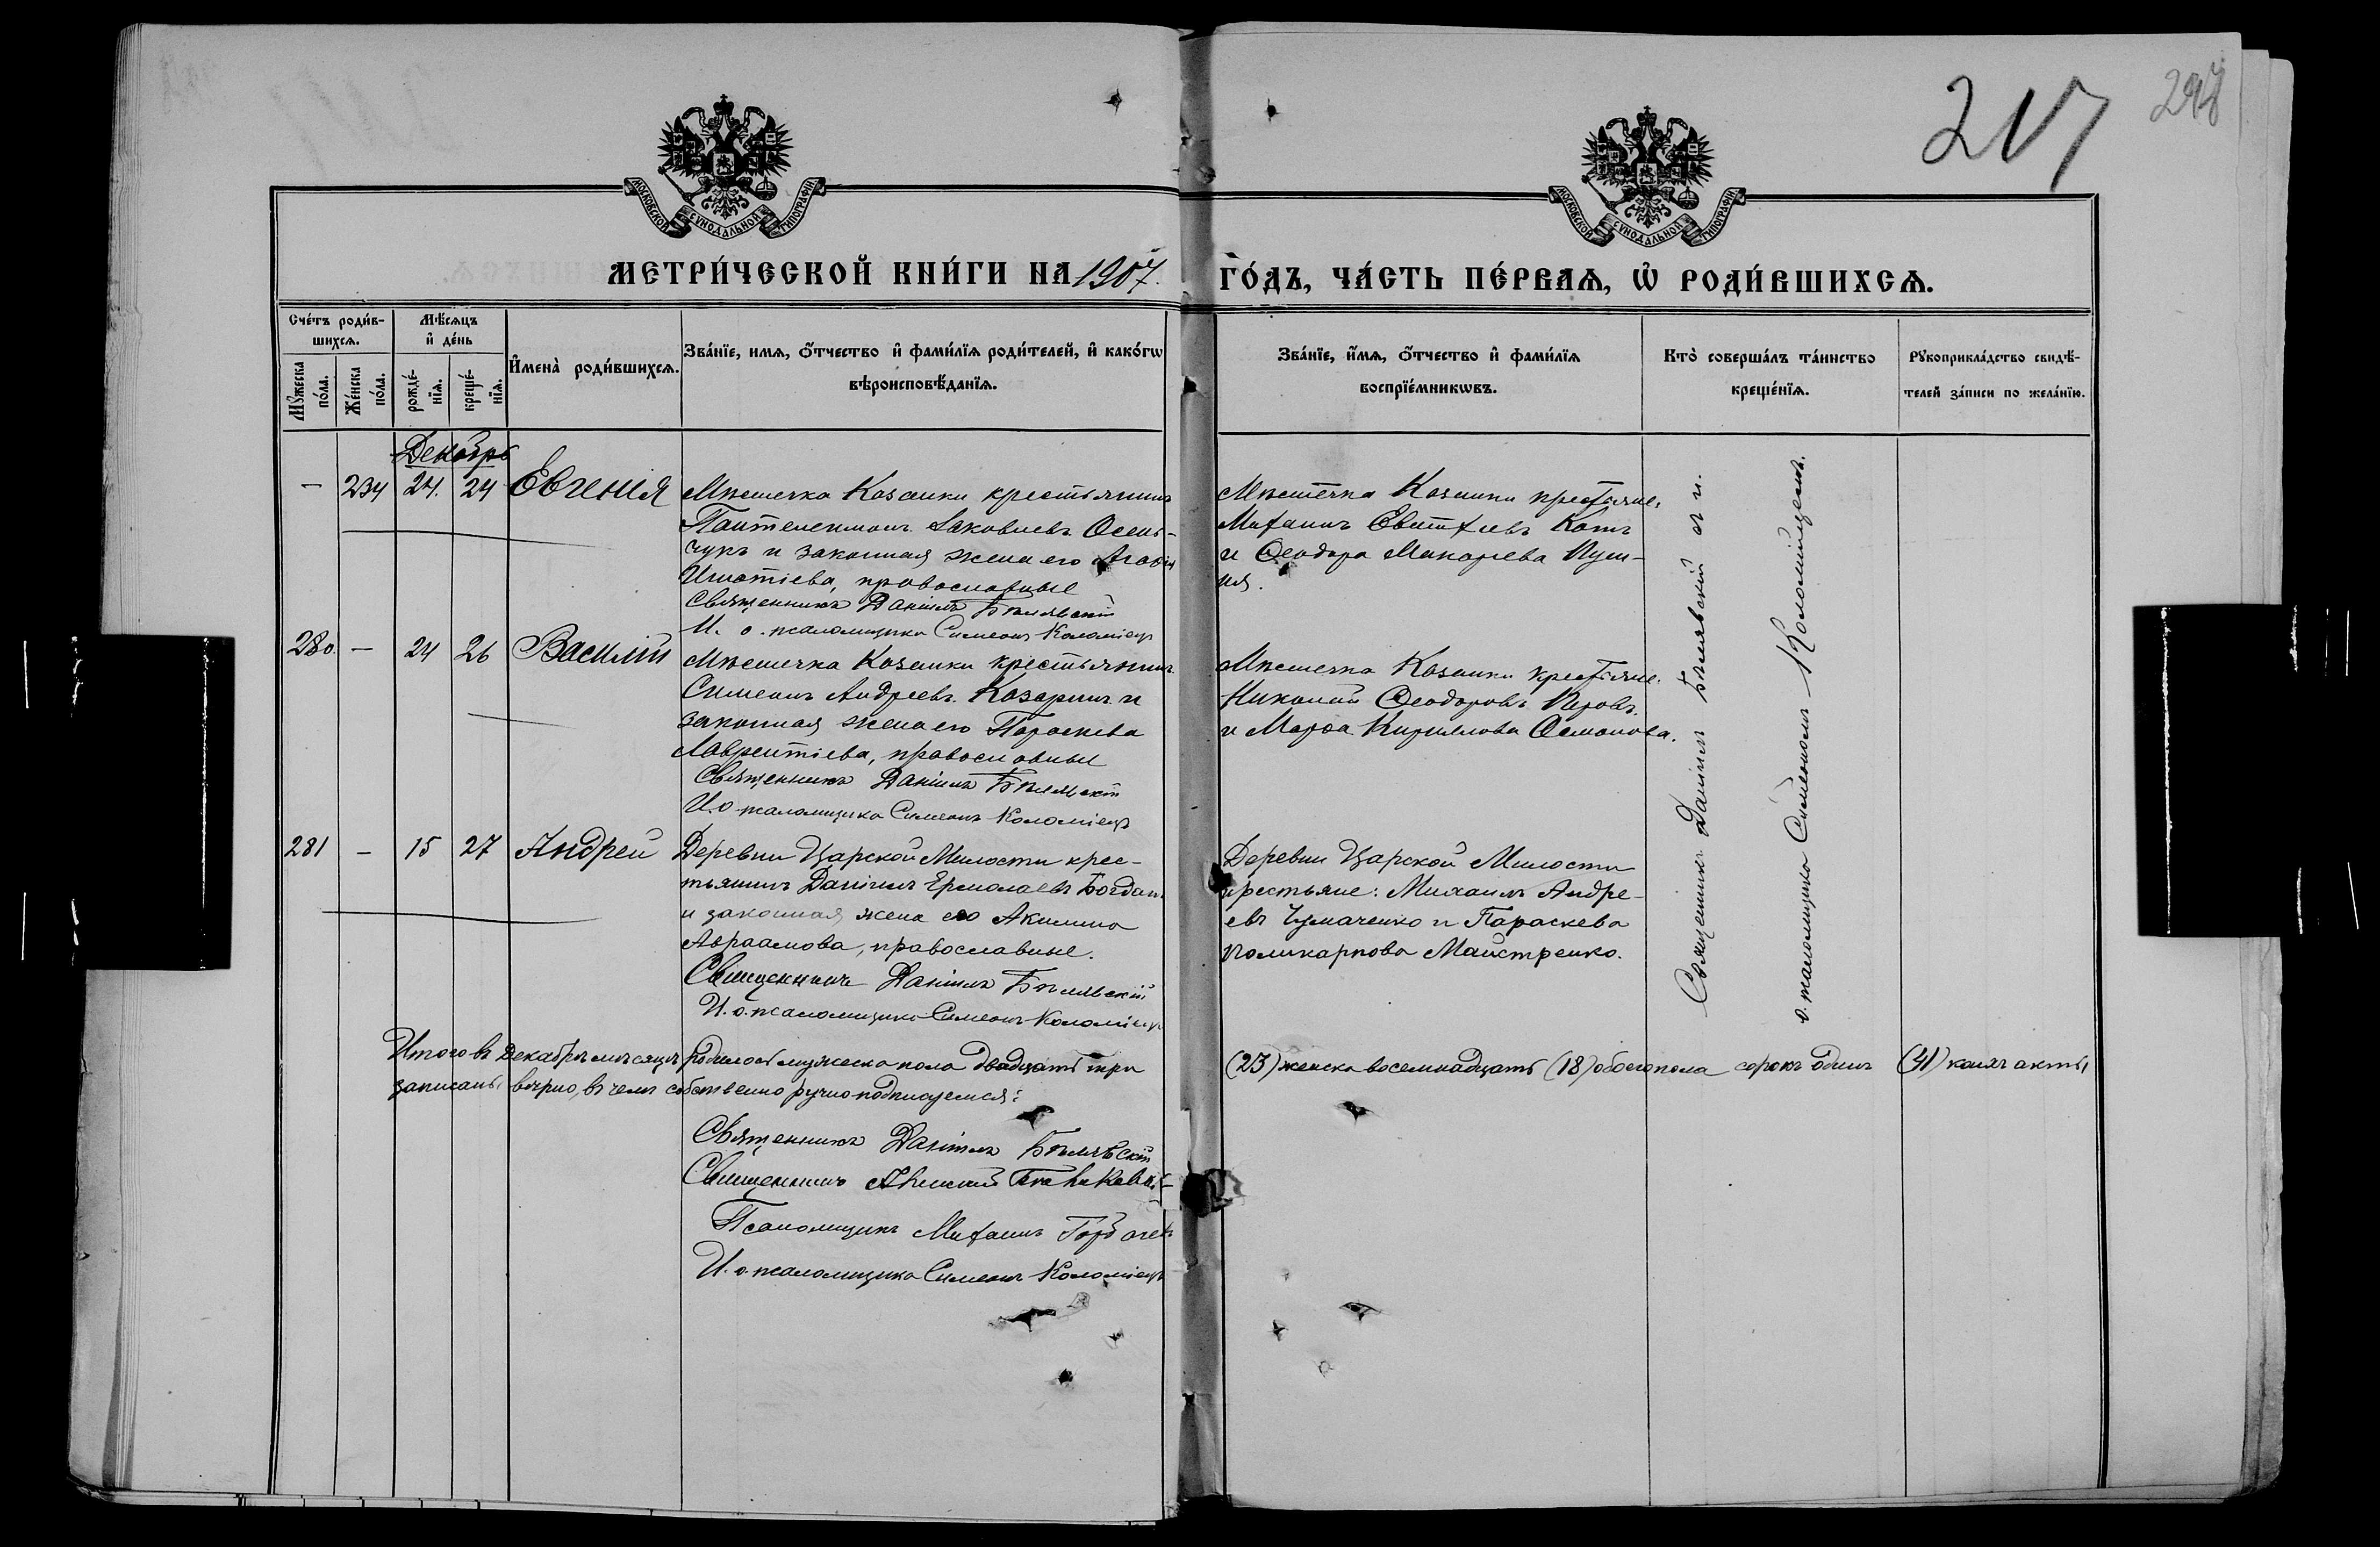 217
МОСКОВСКОЙ СѴНОДАЛЬНОЙ ТИПОГРАФІИ
МОСКОВСКОЙ СѴНОДАЛЬНОЙ ТИПОГРАФІИ
МЕТРИ́ЧЕСКОЙ КНИ́ГИ НА 1907. ГО́ДЪ, ЧА́СТЬ ПЕ́РВАѦ, Ѡ РОДИ́ВШИХСѦ.
Сче́тъ роди́в-
шихсѧ.
Мꙋ́жеска по́ла.
Же́нска по́ла.
Мѣ́сѧцъ
и҆ де́нь
рожде́-
нїѧ.
креще́-
нїѧ.
И҆мена̀ роди́вшихсѧ.
Зва́нїе, имѧ, ѻ҆́тчество и҆ фами́лїѧ роди́телей, и҆ како́гѡ
вѣроисповѣ́данїѧ.
Зва́нїе, и҆́мѧ, ѻ҆́тчество и҆ фами́лїѧ
воспрїе́мникѡвъ.
Кто̀ соверша́лъ та́инство
креще́нїѧ.
Рꙋкоприкла́дство свидѣ́-
телей за́писи по жела́нїю.
Декабрь
— 234 24. 24 Евгенія
Мѣстечка Козацки крестьянинъ
Пантелеимонъ Іаковлевъ Осень-
чукъ и законная жена его Агафія
Игнатіева, православные
Священникъ Даніилъ Бѣлявскій
И. о. псаломщика Симеонъ Коломіецъ
Мѣстечка Козацки крестьяне:
Михаилъ Евтихіевъ Котъ
и Ѳеодора Макарева
280. — 24 26 Василій
Мѣстечка Козацки крестьянинъ
Симеонъ Андреевъ Козаринъ и
законная жена его Параскева
Лаврентіева, православные
Священникъ Даніилъ Бѣлявскій
И. о. псаломщика Симеонъ Коломіецъ
Мѣстечка Козацки крестьяне:
Николай Ѳеодоровъ
и Марѳа Кириллова Османова.
281 — 15 27 Андрей
Деревни Царской Милости крес-
тьянинъ Даніилъ Ермолаевъ Богданъ
и законная жена его Акилина
Авраамова, православные.
Священникъ Даніилъ Бѣлявскій
И. о. псаломщика Симеонъ Коломіецъ
Деревни Царской Милости
крестьяне: Михаилъ Андре-
евъ Чумаченко и Параскева
Поликарпова Майстренко.
Священникъ Даніилъ Бѣлявскій съ и.
о. псаломщика Симеономъ Коломійцемъ.
Итого въ Декабрѣ мѣсяцѣ родилось мужеска пола двадцать три (23) женска восемнадцать (18) обоего пола сорокъ одинъ (41) коихъ акты
записаны вѣрно, въ чемъ собственно ручно подписуемся:
Священникъ Даніилъ Бѣлявскій
Священникъ
Псаломщикъ Михаилъ
И. о. псаломщика Симеонъ Коломіецъ